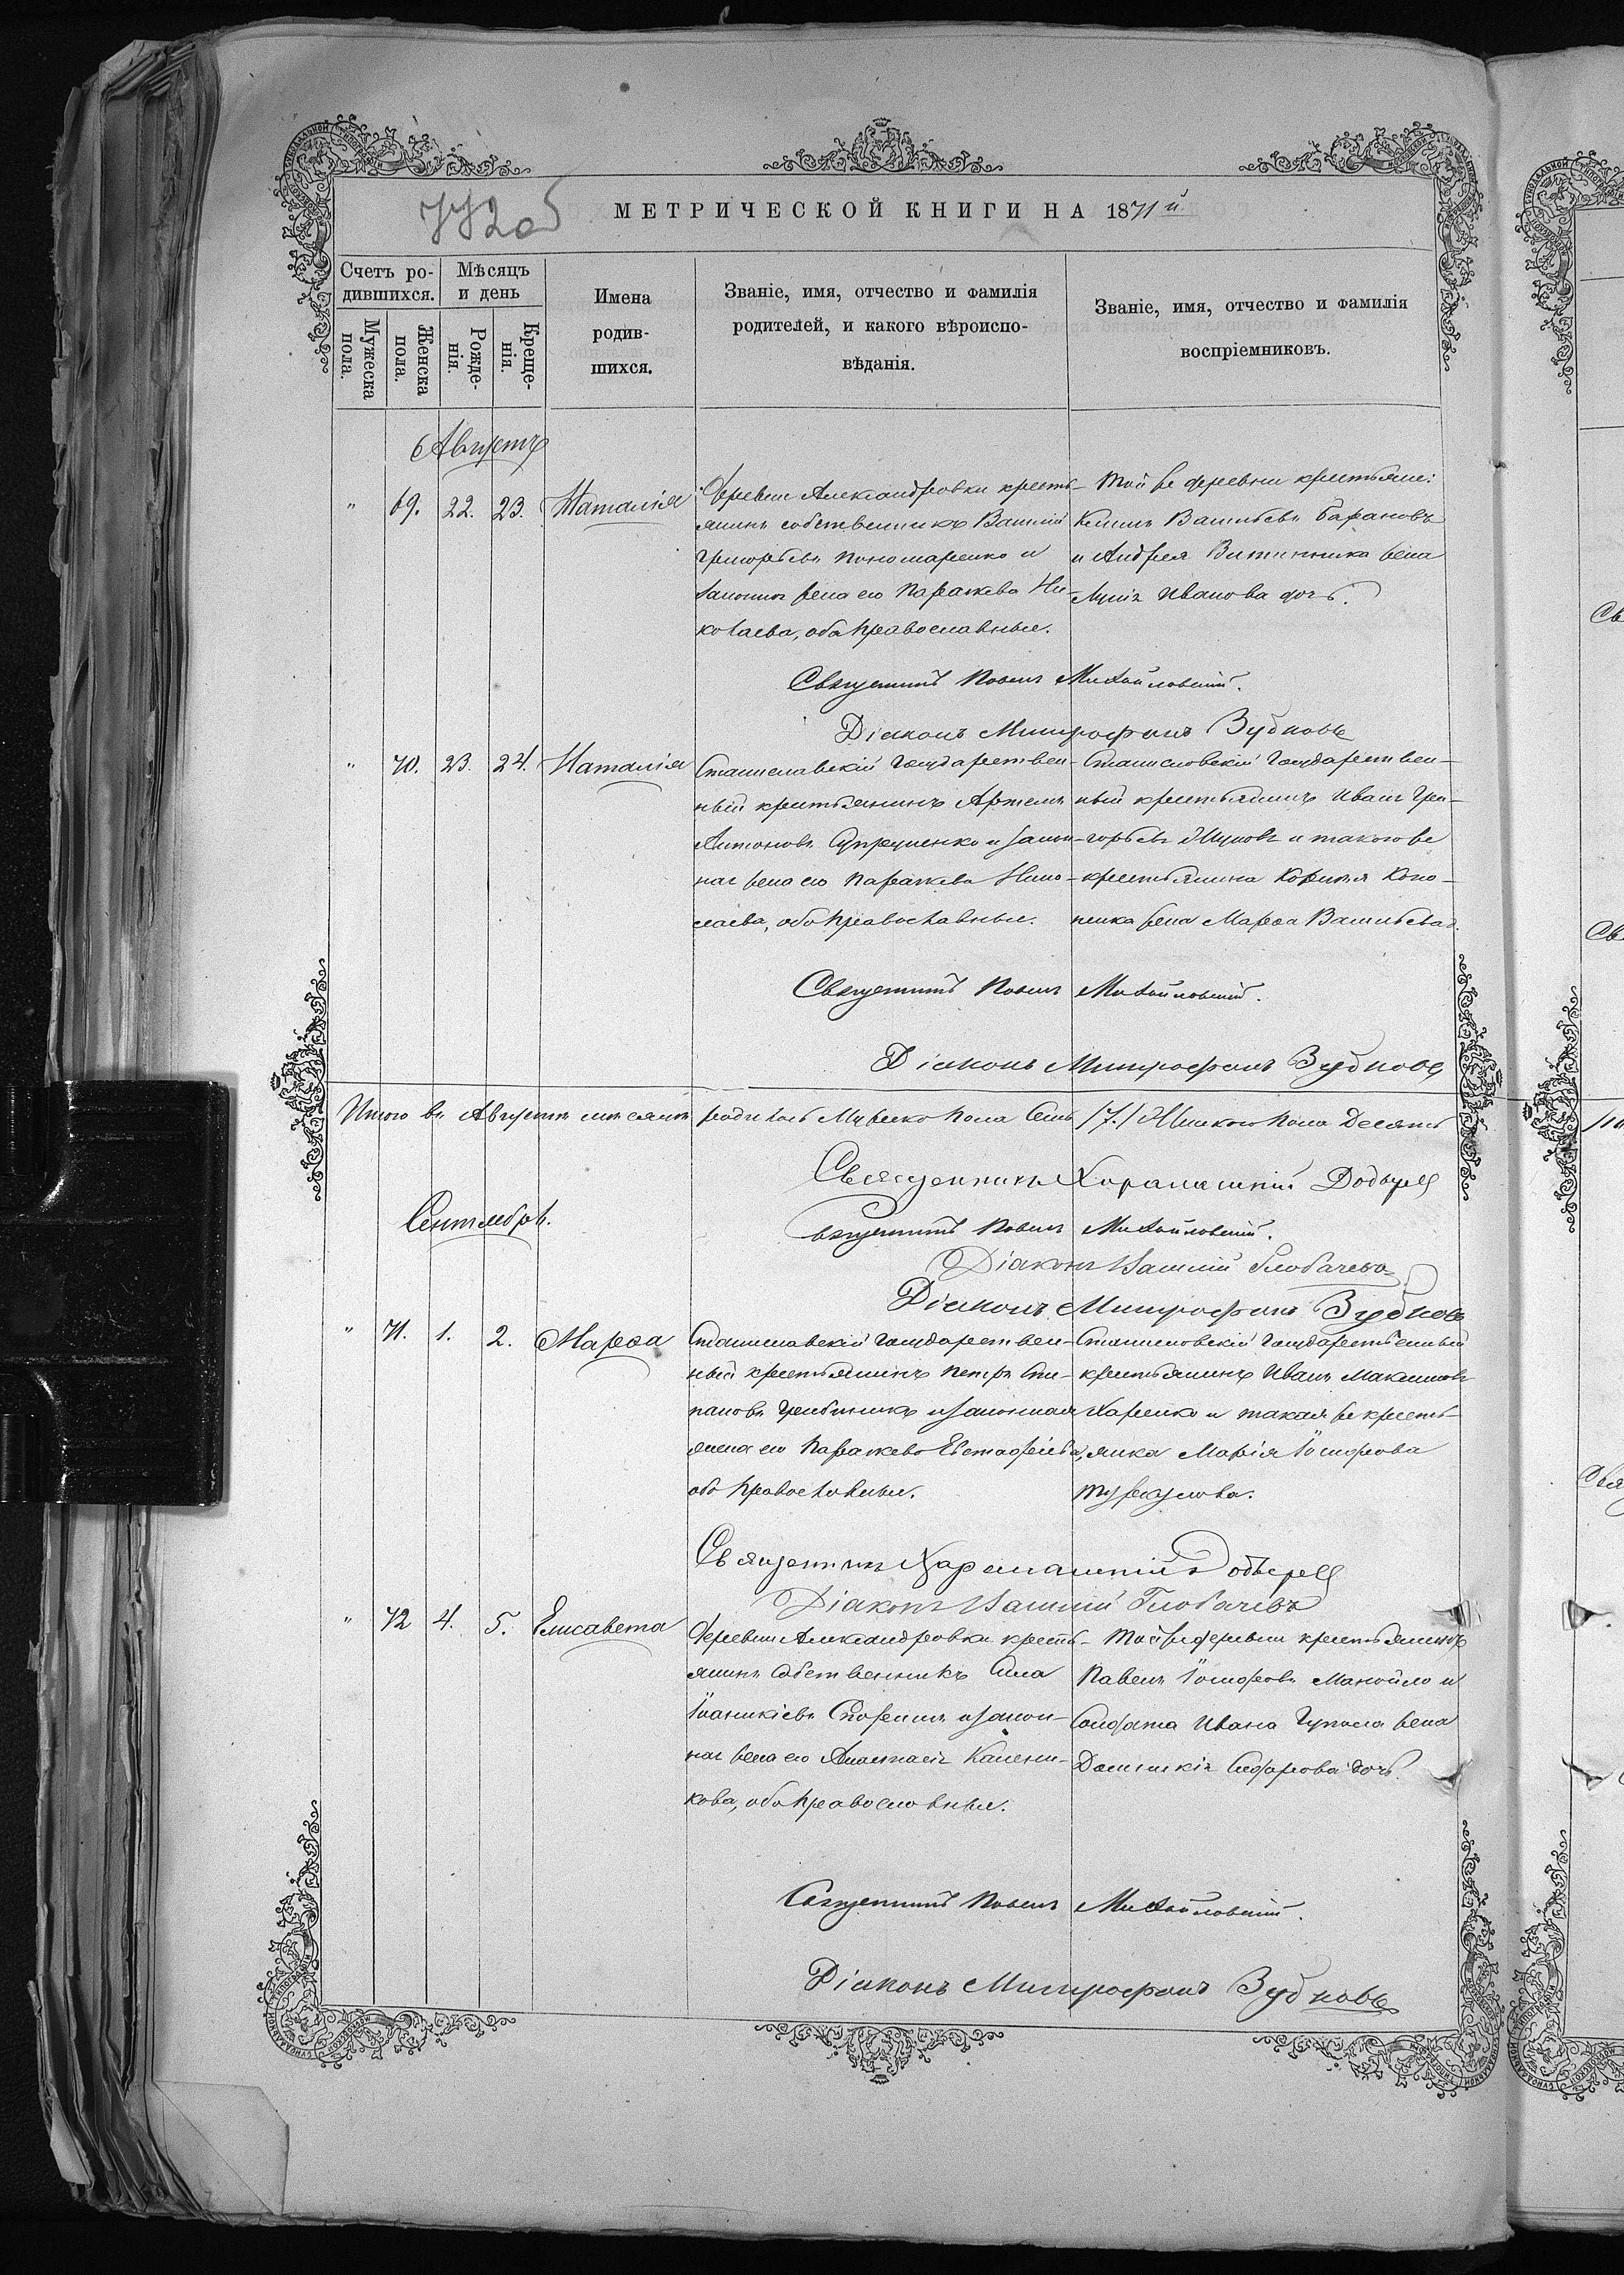 772об
МЕТРИЧЕСКОЙ КНИГИ НА 1871й
Счетъ ро-
дившихся.
Мѣсяцъ
и день
Мужеска
пола.
Женска
пола.
Рожде-
нія.
Креще-
нія.
Имена
родив-
шихся.
Званіе, имя, отчество и фамилія
родителей, и какого вѣроиспо-
вѣданія.
Званіе, имя, отчество и фамилія
воспріемниковъ.
Августъ
" 69. 22. 23. Наталія
Деревни Александровки кресть-
янинъ собственникъ Василій
Григорьевъ Пономаренко и
законная жена его Параскева Ни-
колаева, оба православные.
Той же деревни крестьяне:
Васильевъ Барановъ
и Андрея жена
Иванова дочь.
Священникъ Павелъ Михайловскій.
Діаконъ Митрофанъ Зубковъ
" 70. 23. 24. Наталія
Станиславскій государствен-
ный крестьянинъ Артемъ
Антоновъ Супруненко и закон-
ная жена его Параскева Нико-
лаева, оба православные.
Станиславскій государствен-
ный крестьянинъ Иванъ Гри-
горьевъ и таковаго же
крестьянина Коно-
ненка жена Марѳа Васильева д.
Священникъ Павелъ Михайловскій.
Діаконъ Митрофанъ Зубковъ
Итого въ Августѣ мѣсяцѣ родилось Мужеско пола Семь /7./ Женскаго пола Десять
Священникъ Харалампій
Сентябрь.
Священникъ Павелъ Михайловскій.
Діаконъ Василій Глобачевъ
Діаконъ Митрофанъ Зубковъ
" 71. 1. 2. Марѳа
Станиславскій государствен-
ный крестьянинъ Петръ Сте-
пановъ и законная
жена его Параскева Евстафіева,
оба православные.
Станиславскій государственный
крестьянинъ Иванъ Максимовъ
Харенко и такая же кресть-
янка Марія Іосифова
Священникъ Харалампій
Діаконъ Василій Глобачевъ
" 72 4. 5. Елисавета
Деревни Александровки кресть-
янинъ собственникъ Сила
Іоаникіевъ и закон-
ная жена его Анастасія Калени-
кова, оба православные.
Той же деревни крестьянинъ
Павелъ Іосифовъ Манойло и
Солдата Ивана жена
Домникія дочь.
Священникъ Павелъ Михайловскій.
Діаконъ Митрофанъ Зубковъ